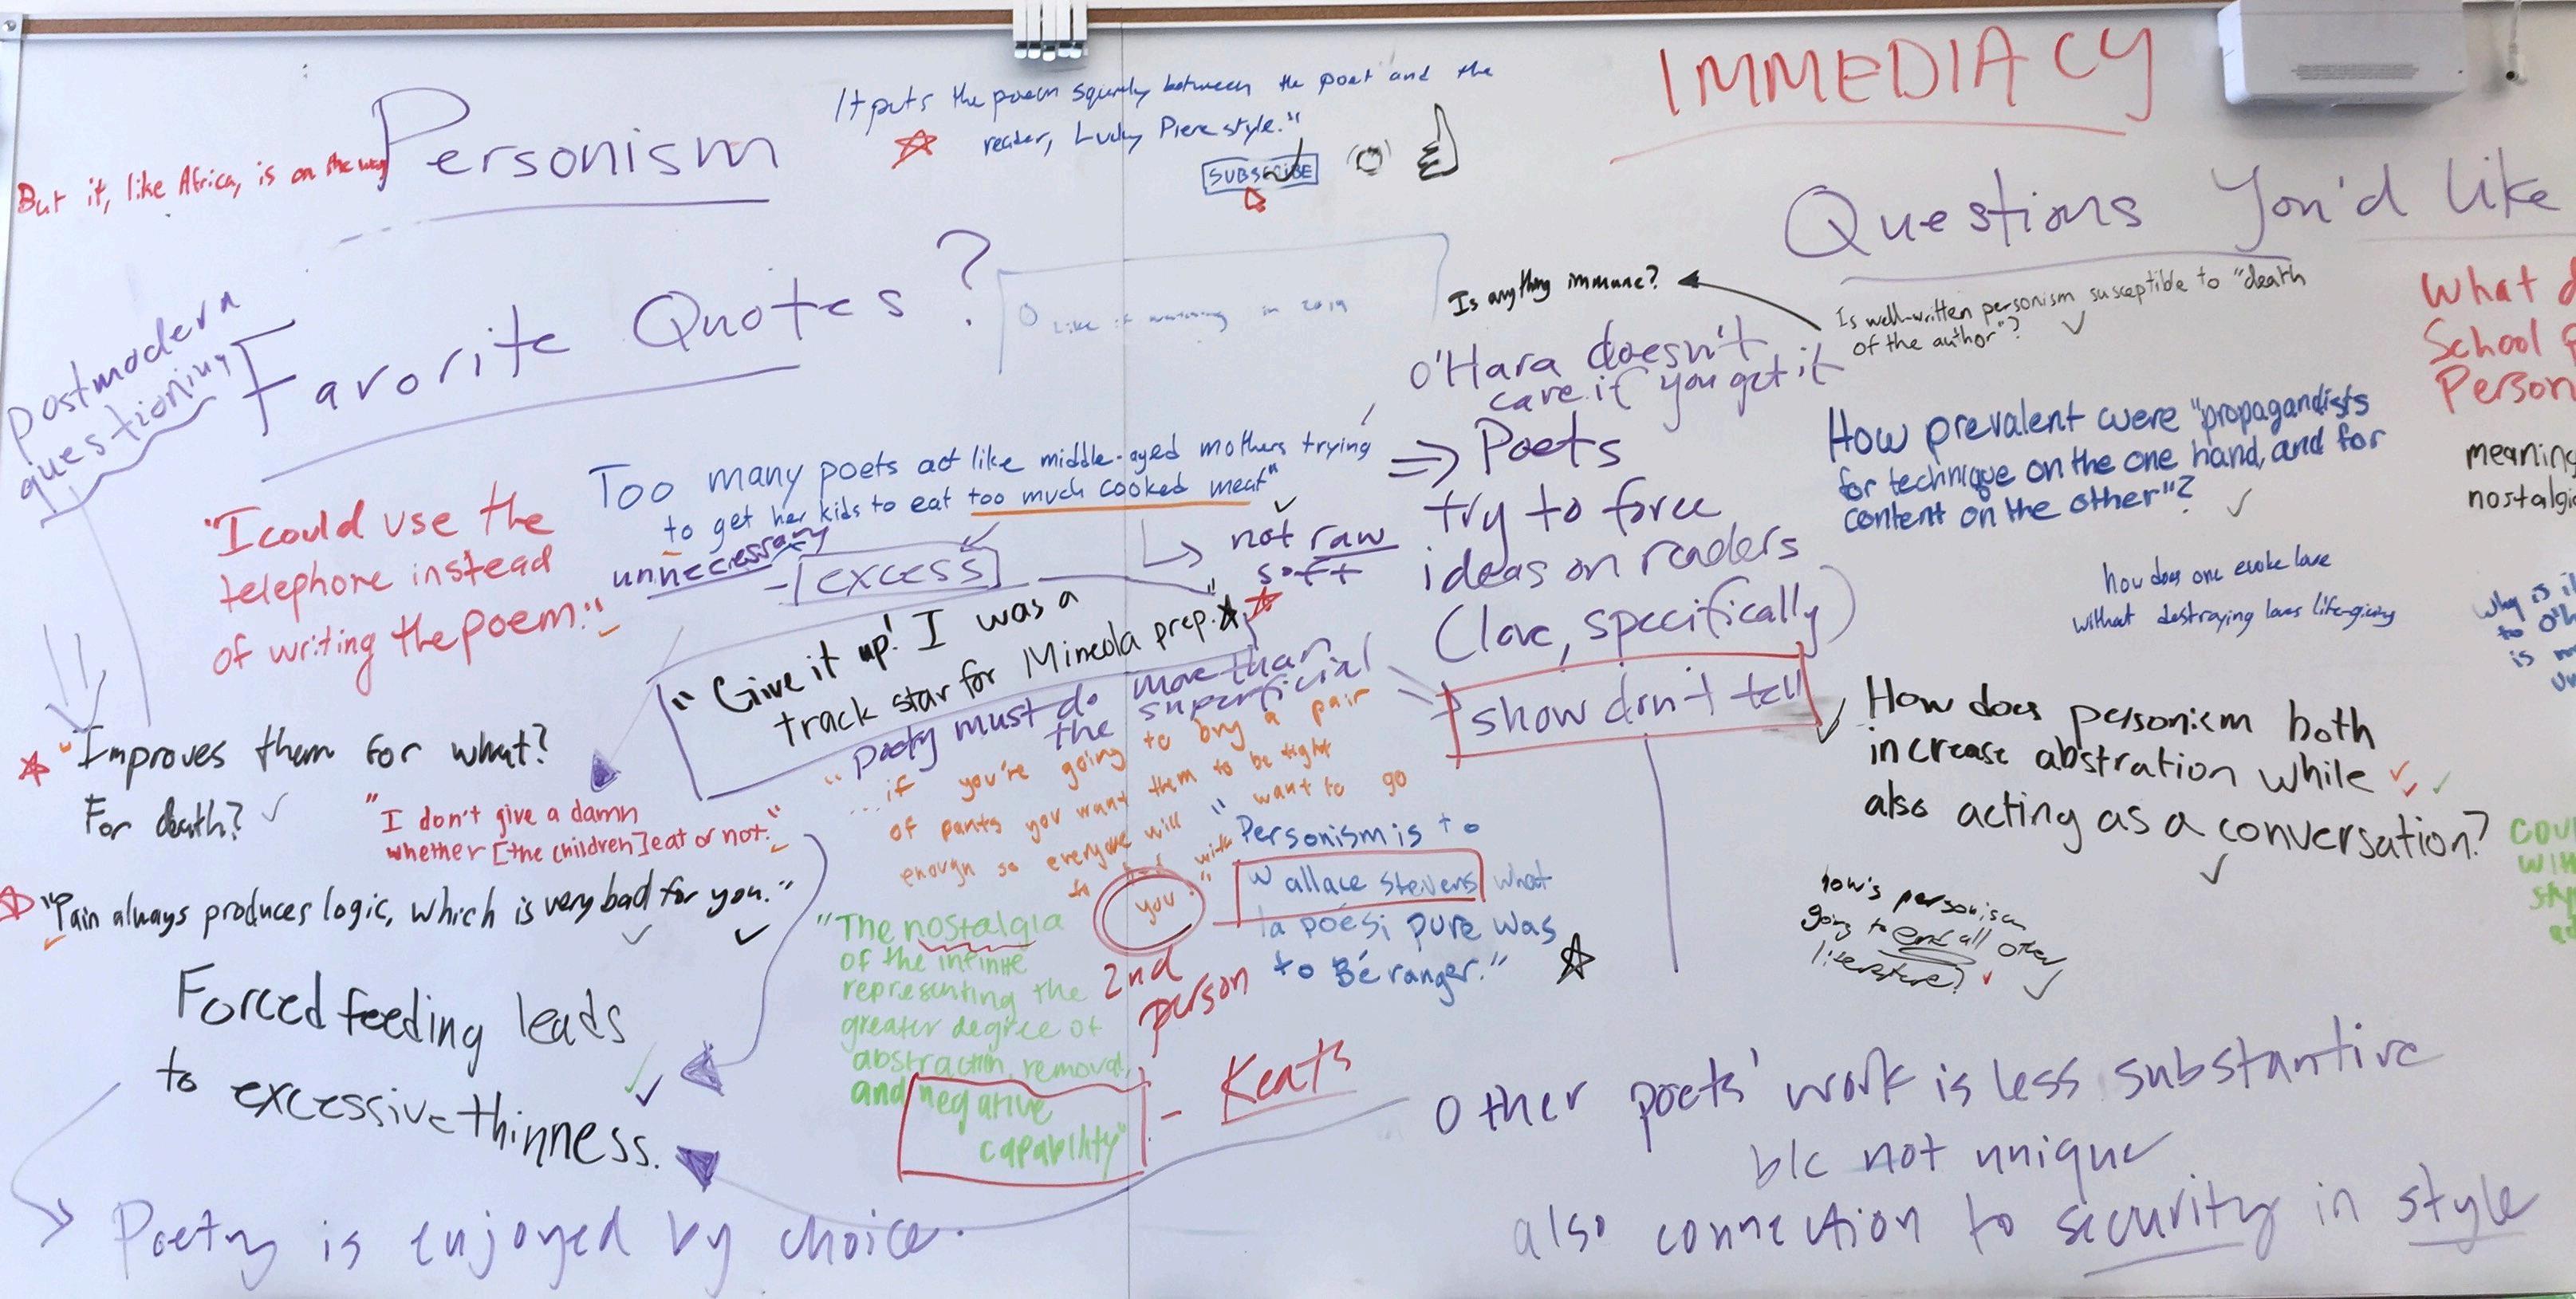 Personism
But it, like Africa, is on the way
It puts the poem squarely between the poet and the
reader, Lucky Pierre style."
SUBSCRIBE
IMMEDIACY
Questions You'd like
Favorite Quotes?
postmodern
questioning
Like if watching in 2019
Is anything immune?
Is well-written personism susceptible to "death
of the author"?
O'Hara doesn't
care if you get it
What d
School
Person
meaning
nostalgi
Too many poets act like middle-aged mothers trying
to get her kids to eat too much cooked meat"
unnecessary
excess
not raw
soft
=> Poets
try to force
ideas on readers
(love, specifically)
show don't tell
How prevalent were "propagandists
for technique on the one hand, and for
content on the other"?
how does one evoke love
without destroying loves life-giving
Why is i
to O'H
is
"I could use the
telephone instead
of writing the poem."
"Give it up! I was a
track star for Mineola prep."
poetry must do more than
the superficial
"Improves them for what?
For death?
"I don't give a damn
whether [the children] eat or not."
"Pain always produces logic, which is very bad for you."
"...if you're going to buy a pair
of pants you want them to be tight
enough so everyone will want to go
to bed with
you."
2nd
person
"Personism is to
Wallace Stevens what
la poési pure was
to Béranger."
"The nostalgia
of the infinite
representing the
greater degree of
abstraction, removal,
and negative
capability"
- Keats
How does personism both
increase abstration while
also acting as a conversation?
how's personism
going to end all other
literature?
COU
Forced feeding leads
to excessive thinness.
Poetry is enjoyed by choice.
Other poets' work is less substantive
b/c not unique
also connection to security in style